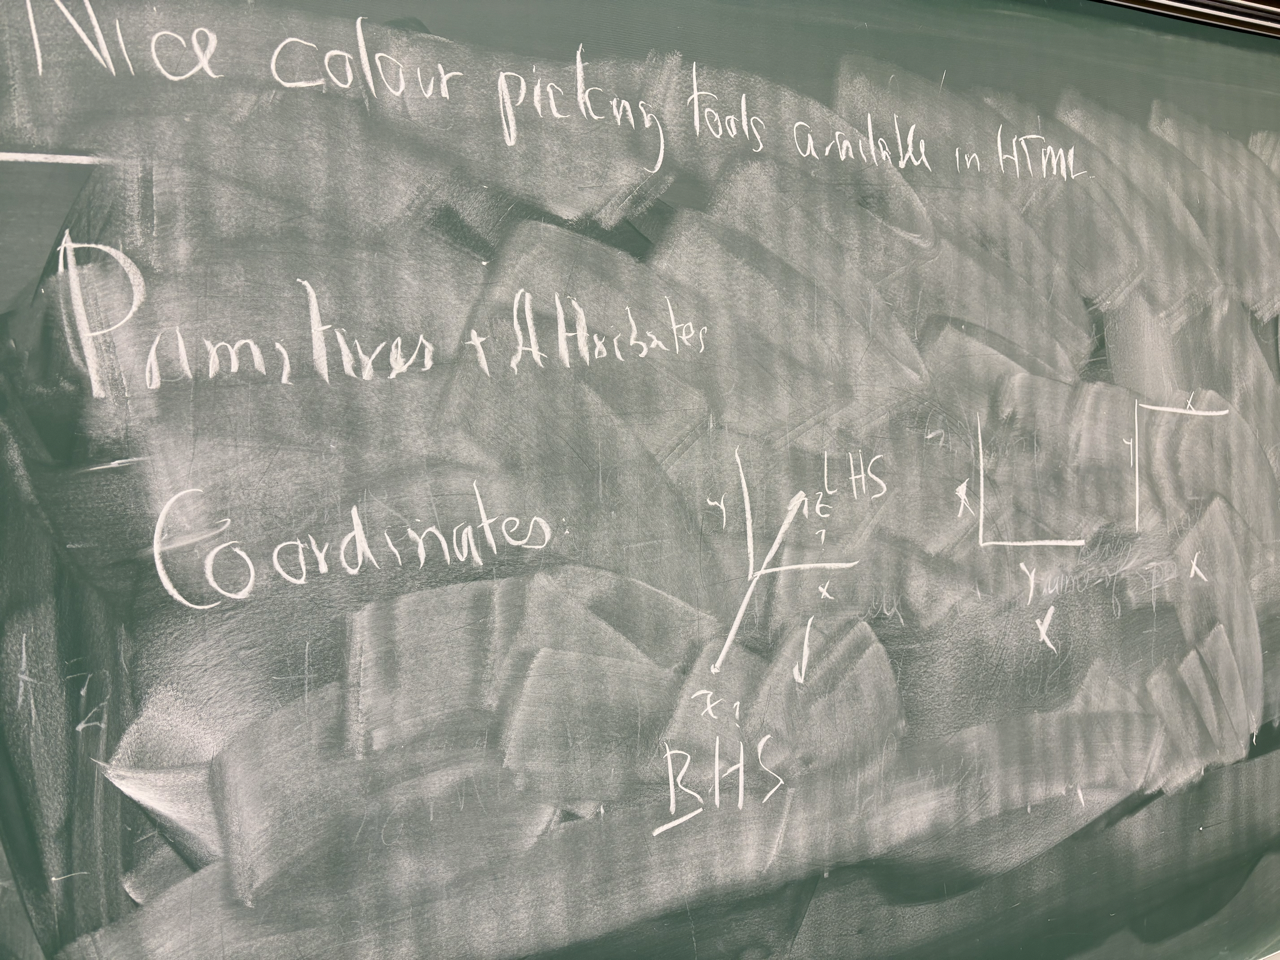 Nice colour picking tools available in HTML
Primitives + Attributes
Coordinates:
y
LHS
z
?
x
z?
RHS
x
y
x
y
x
x